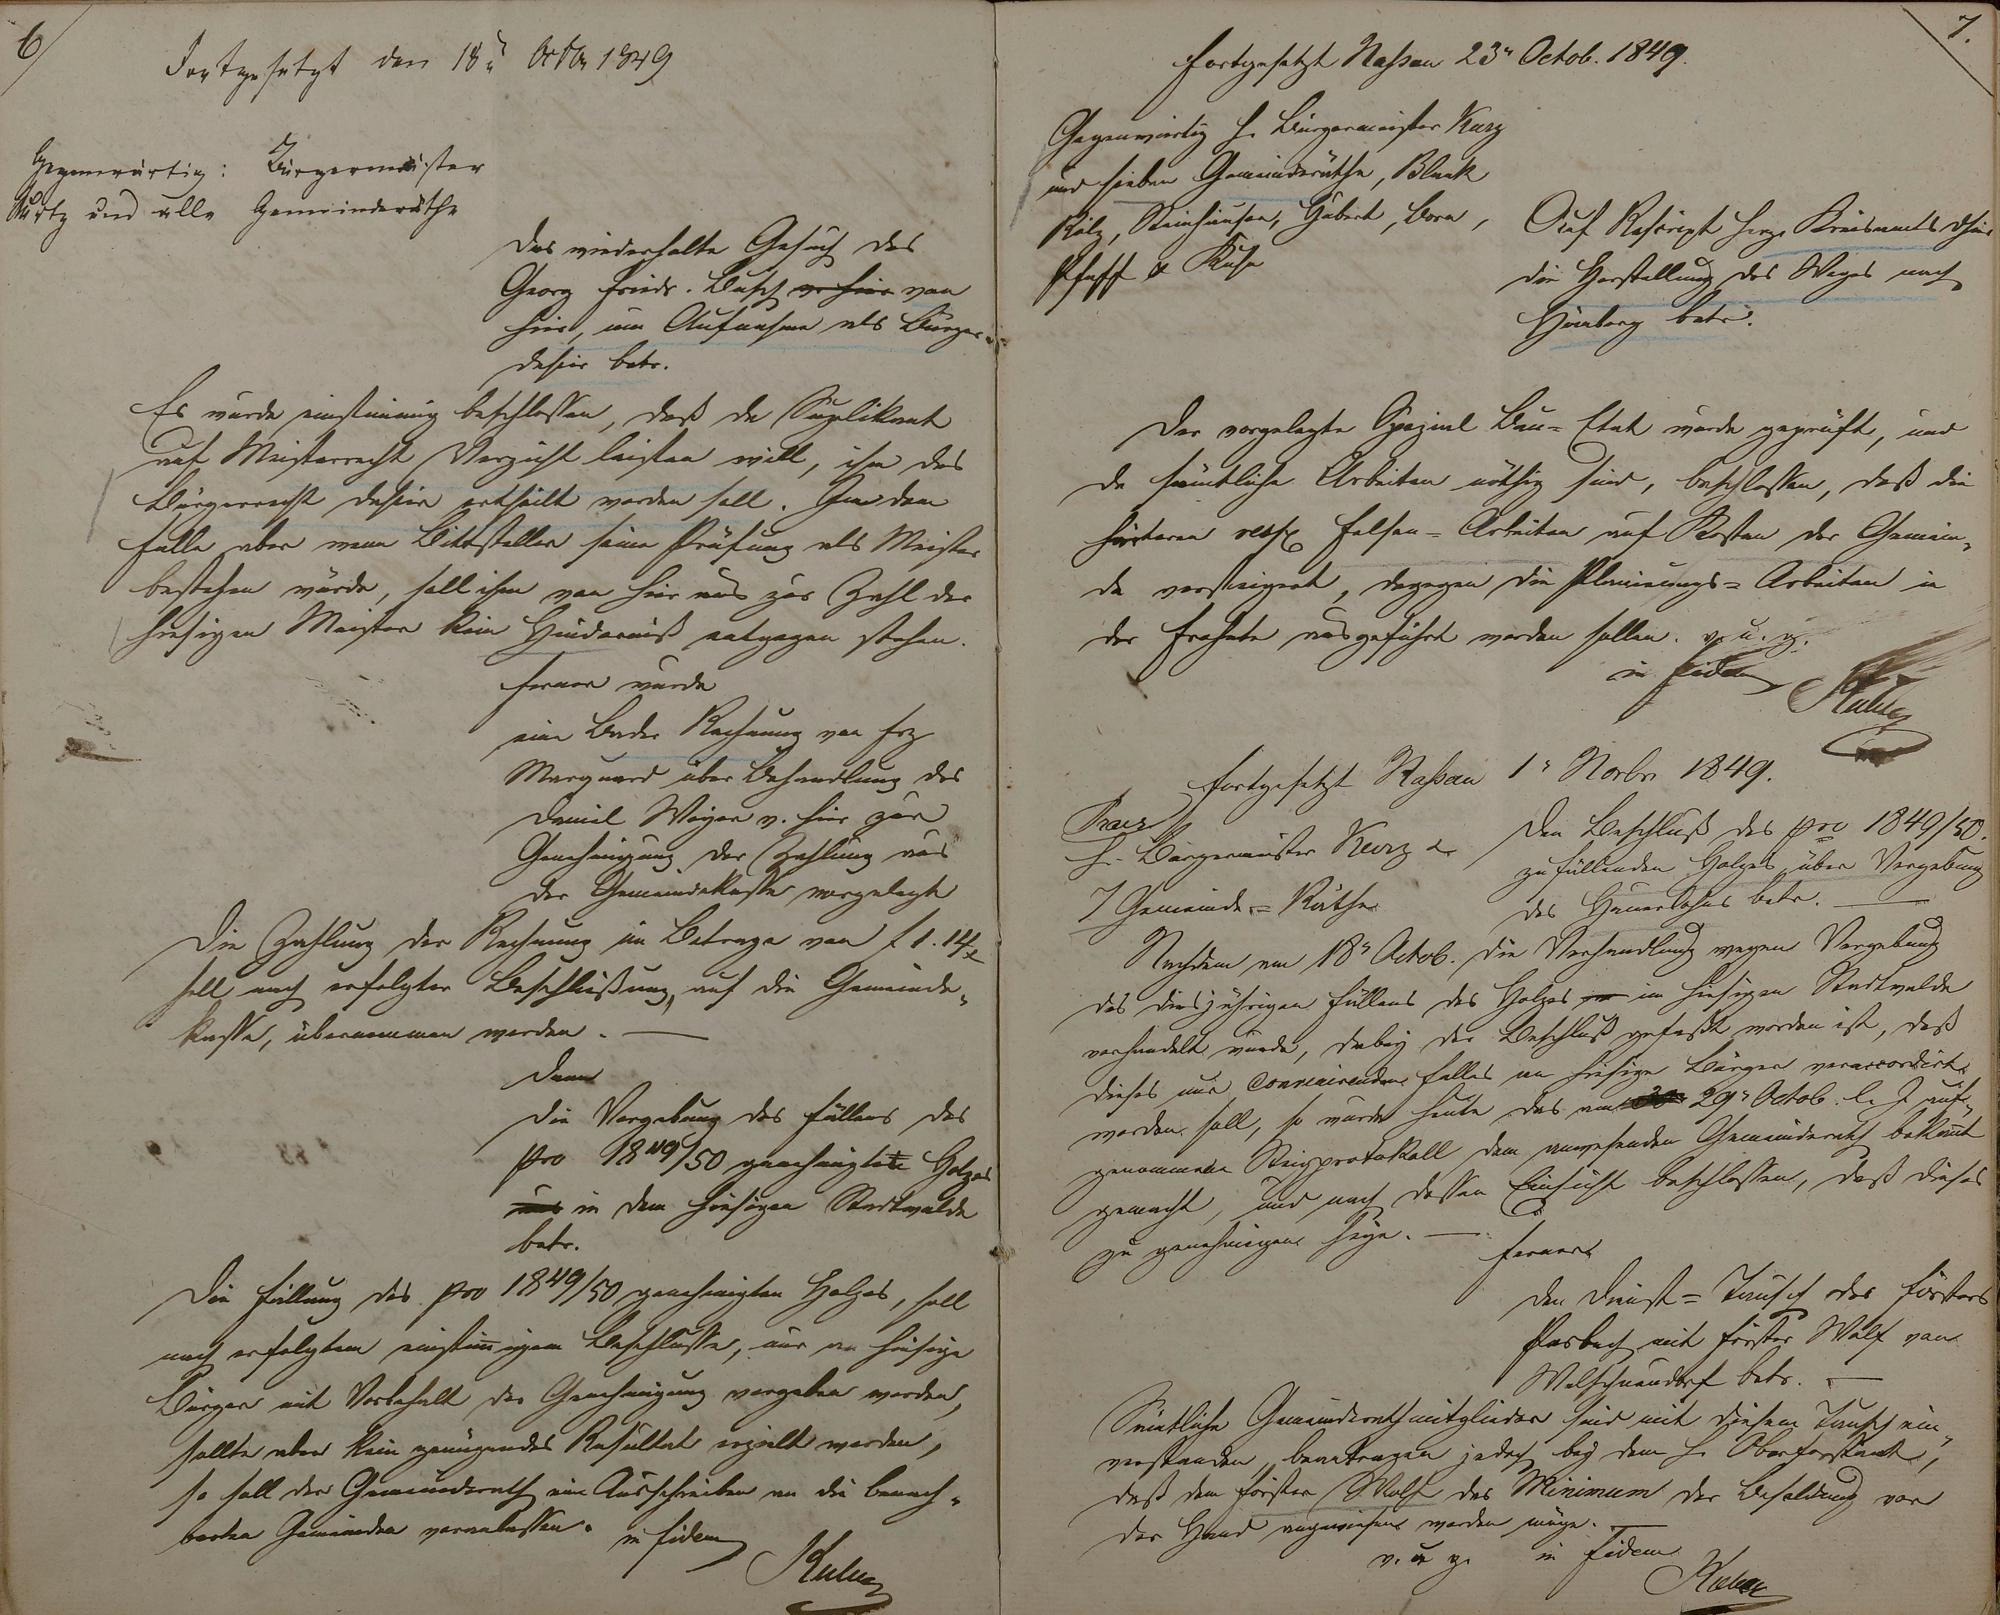 6
Fortgesetzt den 18n Octbr 1849
Gegenwärtig: Bürgermeister
Kurtz und alle Gemeinderäthe
Das wiederholte Gesuch des
Georg Friedr. Busch von
hier, um Aufnahme als Bürger
dahier betr.
Es wurde einstimmig beschlossen, daß da Suplikant
auf Meisterrecht Verzicht leisten will, ihm das
Bürgerrecht dahier ertheilt werden soll. In dem
Falle aber wenn Bittsteller seine Prüfung als Meister
bestehen würde, soll ihm von hier aus zur Zahl der
hiesigen Meister kein Hinderniß entgegen stehen.
Ferner wurde
eine Bader Rechnung von
Marquard über Behandlung des
Daniel v. hier zur
Genehmigung der Zahlung aus
der Gemeindekasse vorgelegt
Die Zahlung der Rechnung im Betrage von f 1. 14x
soll nach erfolgter Beschließung, auf die Gemeinde-
kasse, übernommen werden. —
Dann
Die Vergebung des Fällens des
pro 1849/50 genehmigten Holzes
in dem hiesigen Stadtwalde
betr.
Die Fällung des pro 1849/50 genehmigten Holzes, soll
nach erfolgtem einstimigem Beschlusse, nur an hiesige
Bürger mit Vorbehalt der Genehmigung vergeben werden,
sollte aber kein genügendes Resultat erzielt werden,
so soll der Gemeinderath ein Ausschreiben an die benach-
barten Gemeinden veranlassen. in fidem
7.
Fortgesetzt Nassau 23n Octob. 1849.
Gegenwärtig H. Bürgermeister Kurz
und sieben Gemeinderäthe, Blank
Steinhäuser, Born,
Pfaff &
Auf Rescript Herz. Kreisamts dahier
die Herstellung des Weges nach
Hömberg betr.
Der vorgelegte Spezial Bau-Etat wurde geprüft, und
da sämtliche Arbeiten nöthig sind, beschlossen, daß die
härteren resp. Felsen-Arbeiten auf Kosten der Gemein-
de versteigert, dagegen die Planirungs-Arbeiten in
der Frohnte ausgeführt werden sollen. v. u. g.
in fidem
Fortgesetzt Nassau 1n Novbr 1849.
H. Bürgermeister Kurz &
7 Gemeinde-Räthe
Den Beschluß des pro 1849/50.
zu fällenden Holzes, über Vergebung
des Hauerlohns betr. —
Nachdem am 18n Octob. die Verhandlung wegen Vergebung
des diesjährigen Fällens des Holzes im hiesigen Stadtwalde
verhandelt wurde, dabey der Beschluß gefaßt worden ist, daß
dieses nur convenirenden Falles an hiesige Bürger veraccordirt
werden soll, so wurde heute das am 29n Octob. l. J auf-
genommene Steigprotokoll dem anwesenden Gemeinderath bekannt
gemacht, und nach dessen Einsicht beschlossen, daß dieses
zu genehmigen seye. —
Ferner
Den Dienst-Tausch des Försters
mit Förster Wolf von
Welschneudorf betr. —
Sämtliche Gemeinderathmitglieder sind mit diesem Tausch ein-
verstanden, beantragen jedoch bey dem H. Oberforstamt,
daß dem Förster Wolf das Minimum der Besoldung vor
der Hand angewiesen werden möge. —
v. u. g. in fidem